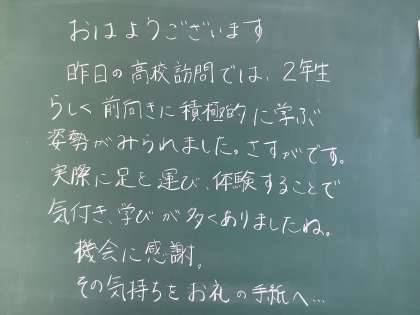 おはようございます
昨日の高校訪問では、2年生
らしく前向きに積極的に学ぶ
姿勢がみられました。さすがです。
実際に足を運び、体験することで
気付き、学びが多くありましたね。
機会に感謝。
その気持ちをお礼の手紙へ…